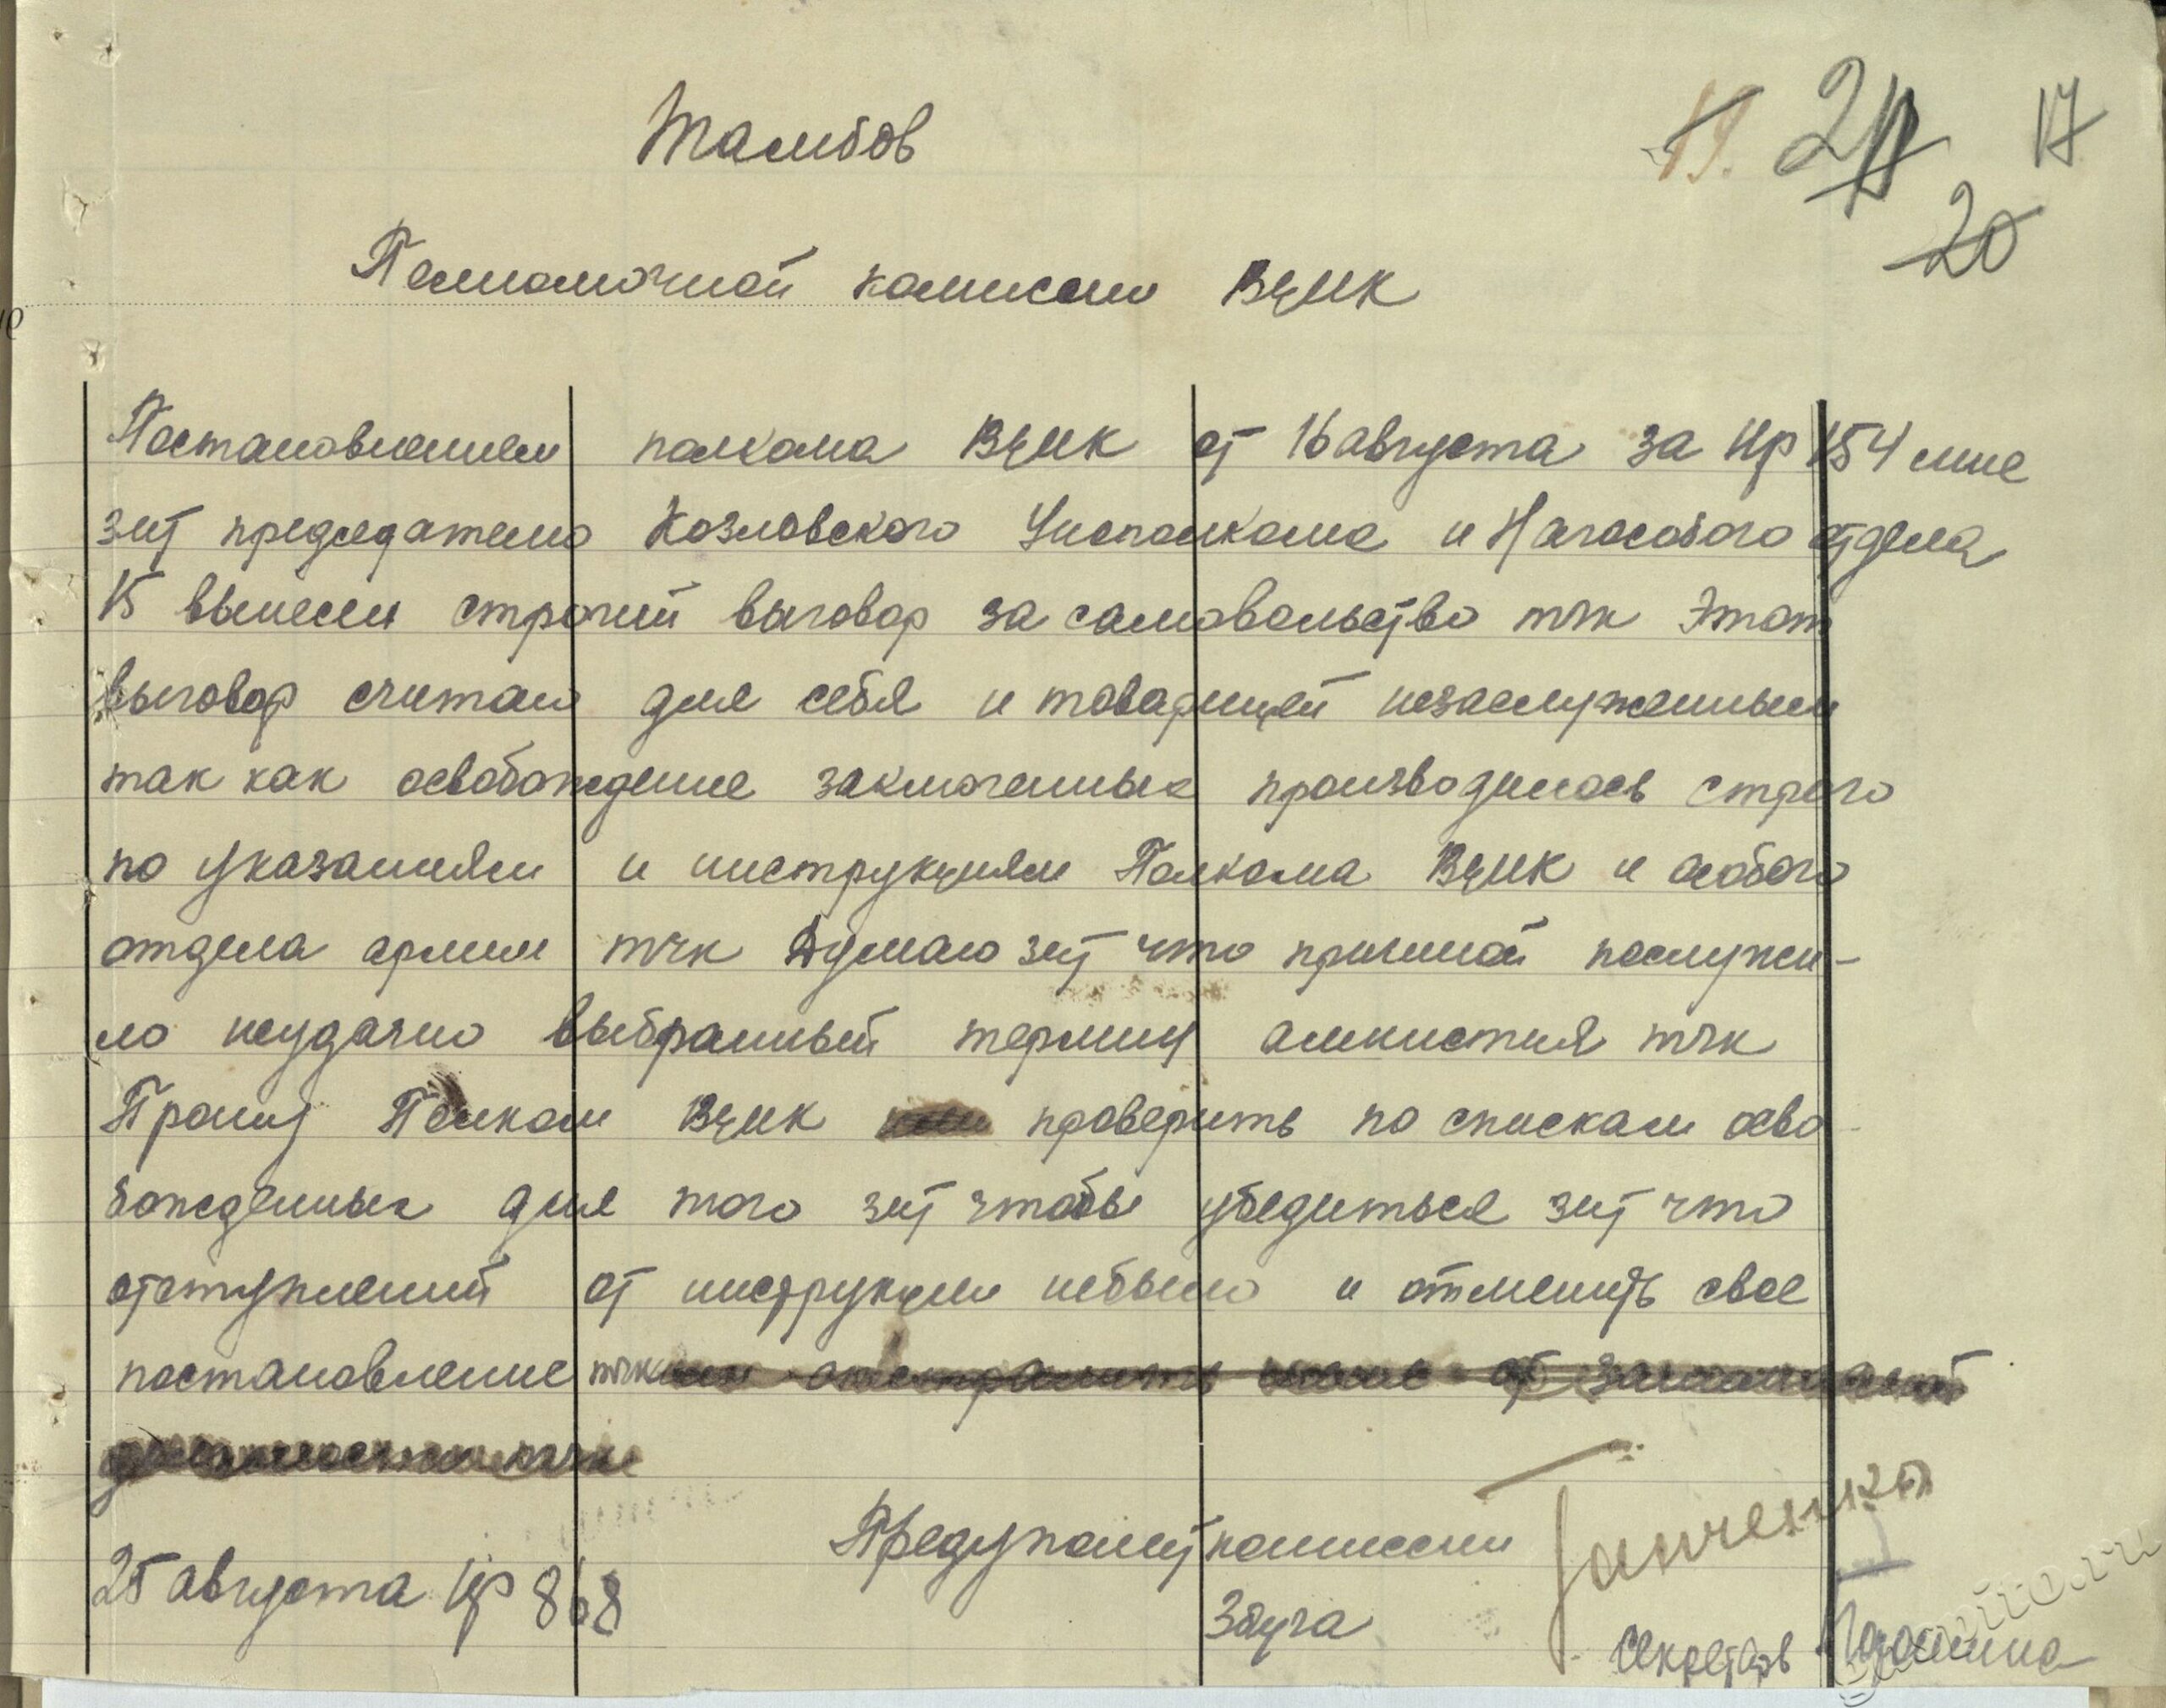 19. 21 17
20
Тамбов
Полномочной комиссии ВЦИК
Постановлением полкома ВЦИК от 16 августа за Нр 154 мне
зпт председателю Козловского Уисполкома и Начособого отдела
15 вынесен строгий выговор за самовольство тчк Этот
выговор считаю для себя и товарищей незаслуженным
так как освобождение заключенных производилось строго
по указаниям и инструкциям Полкома ВЦИК и особого
отдела армии тчк Думаю зпт что причиной послужи-
ло неудачно выбранный термин амнистия тчк
Прошу Полком ВЦИК проверить по спискам осво-
божденных для того зпт чтобы убедиться зпт что
отступлений от инструкции небыло и отменить свое
постановление тчк
25 августа Нр 868
Предуполит комиссии
3 буча
Ганченко
Секретарь